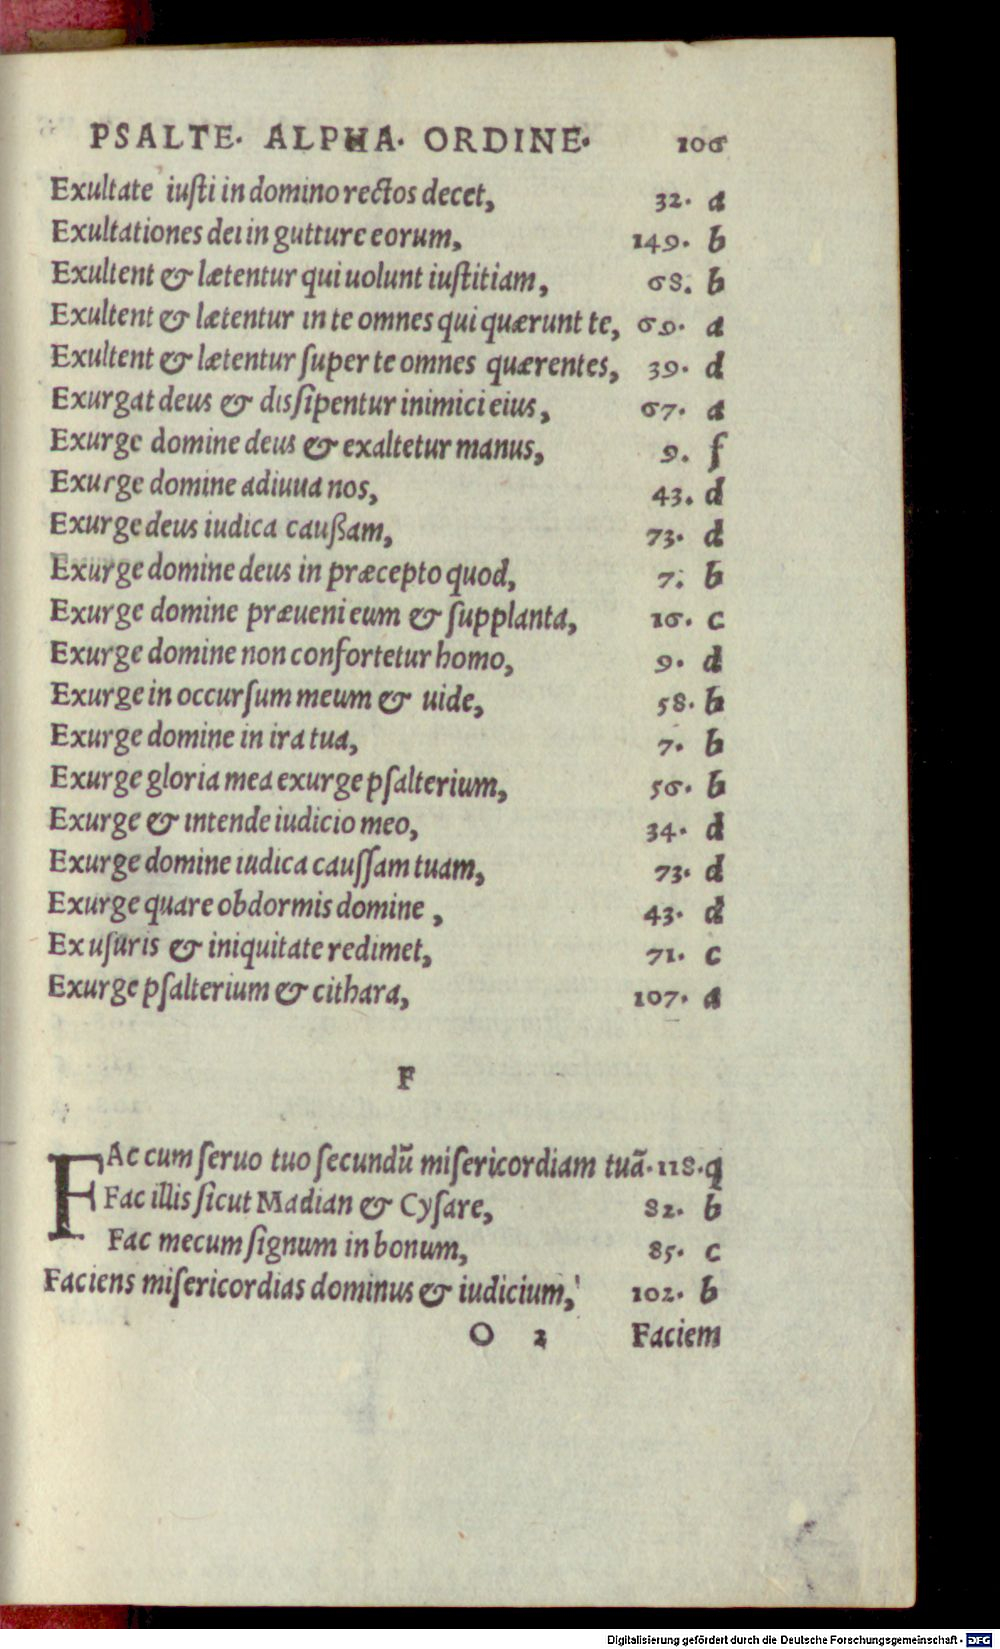 PSALTE· ALPHA· ORDINE· 106
Exultate iusti in domino rectos decet, 32. a
Exultationes dei in gutture eorum, 149. b
Exultent & lætentur qui uolunt iustitiam, 68. b
Exultent & lætentur in te omnes qui quærunt te, 69. a
Exultent & lætentur super te omnes quærentes, 39. d
Exurgat deus & dissipentur inimici eius, 67. a
Exurge domine deus & exaltetur manus, 9. f
Exurge domine adiuua nos, 43. d
Exurge deus iudica caußam, 73. d
Exurge domine deus in præcepto quod, 7. b
Exurge domine præueni eum & supplanta, 16. c
Exurge domine non confortetur homo, 9. d
Exurge in occursum meum & uide, 58. b
Exurge domine in ira tua, 7. b
Exurge gloria mea exurge psalterium, 56. b
Exurge & intende iudicio meo, 34. d
Exurge domine iudica caussam tuam, 73. d
Exurge quare obdormis domine, 43. d
Ex usuris & iniquitate redimet, 71. c
Exurge psalterium & cithara, 107. a
F
FAc cum seruo tuo secundū misericordiam tuã. 118. q
Fac illis sicut Madian & Cysare, 82. b
Fac mecum signum in bonum, 85. c
Faciens misericordias dominus & iudicium, 102. b
O 2 Faciem
Digitalisierung gefördert durch die Deutsche Forschungsgemeinschaft - DFG